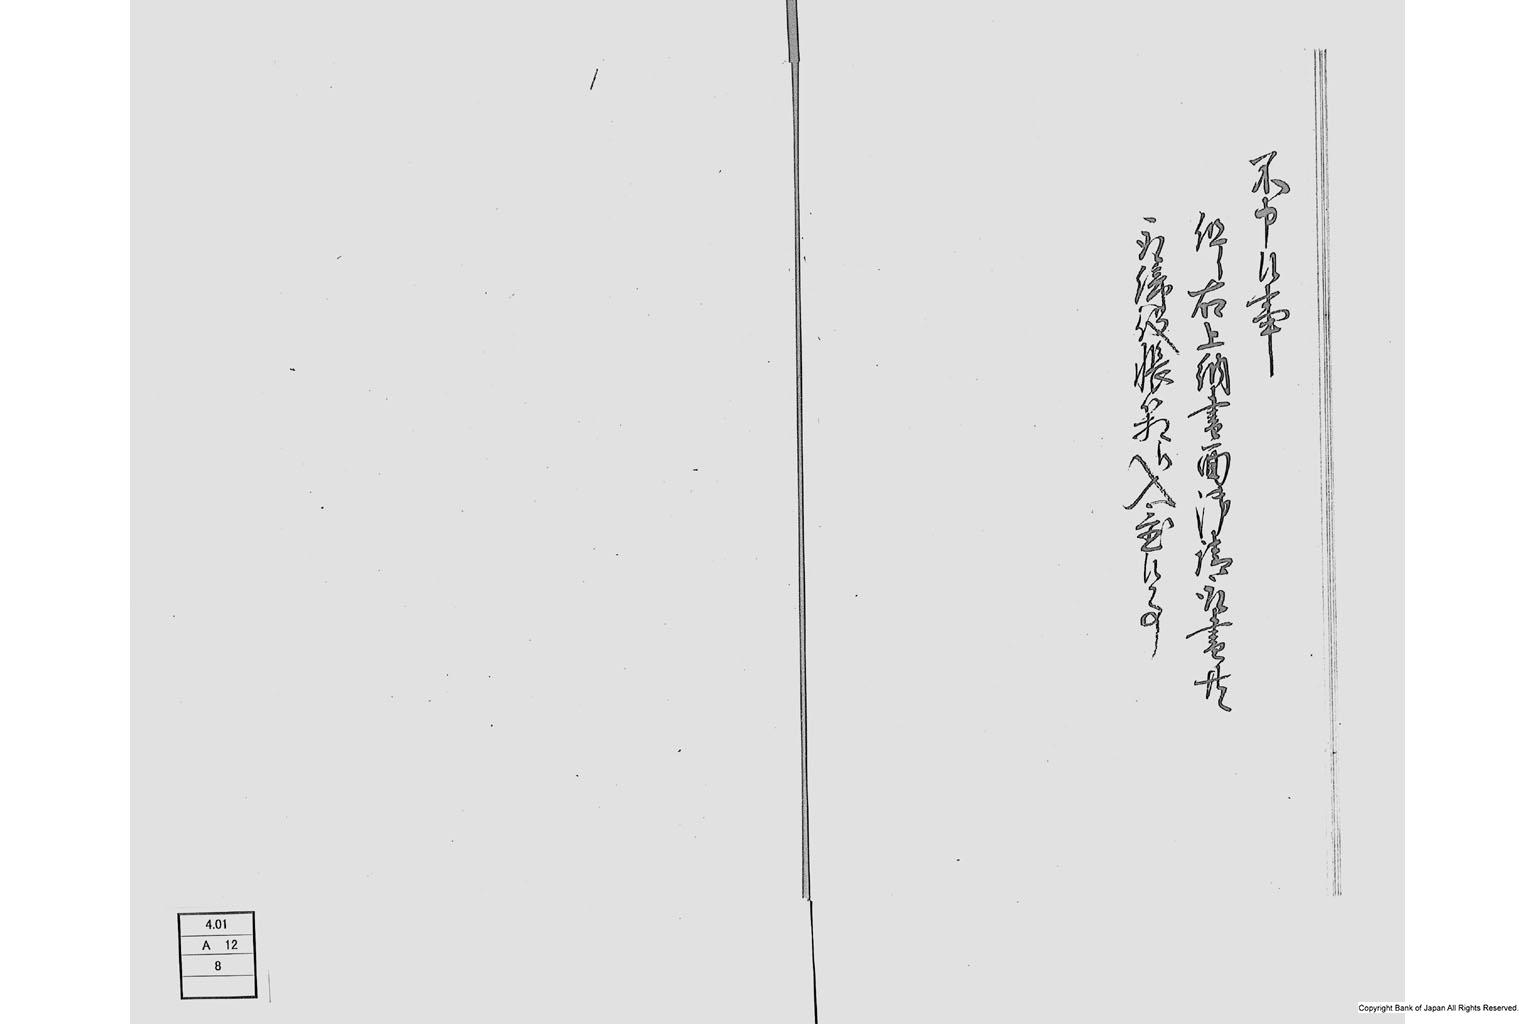 不申候事
但シ右上納書面御請取書共
取締役帳箱江入置候事
4.01
A 12
8
Copyright Bank of Japan All Rights Reserved.